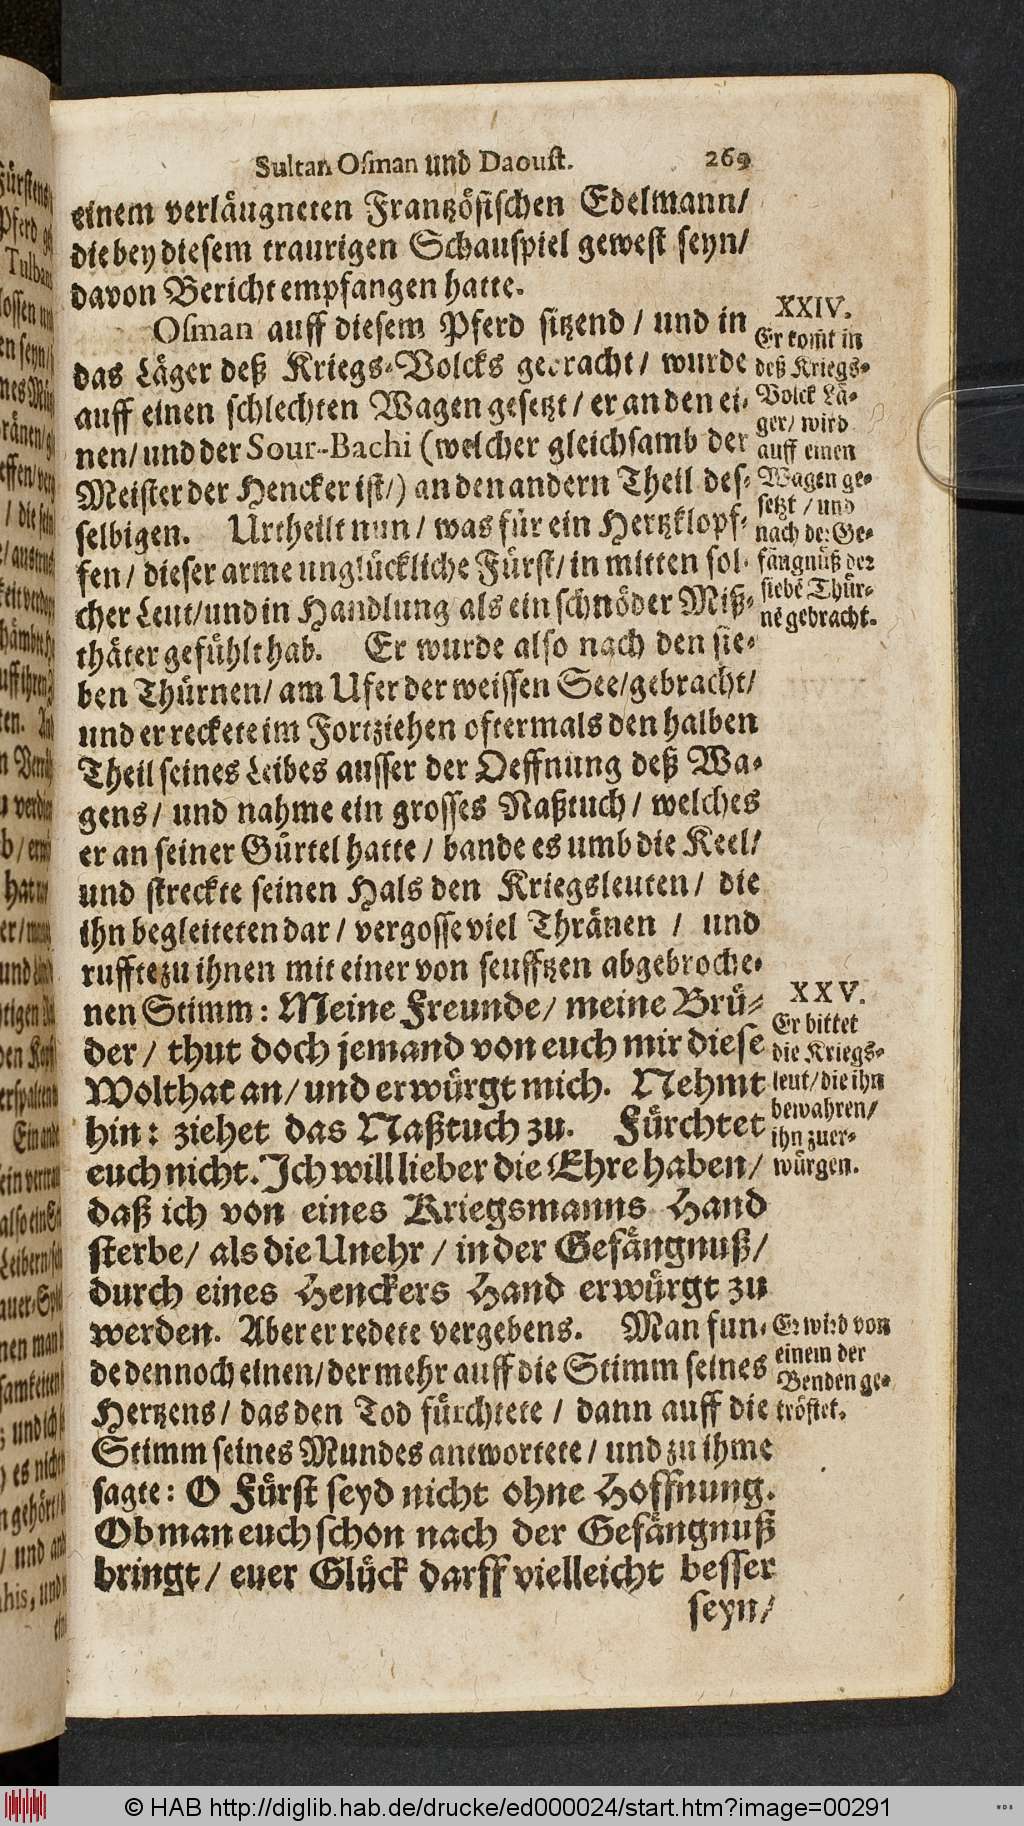 Sultan Osman und Daoust. 269
einem verläugneten Frantzösischen Edelmann/
die bey diesem traurigen Schauspiel gewest seyn/
davon Bericht empfangen hatte.
Osman auff diesem Pferd sitzend / und in
das Läger deß Kriegs-Volcks gebracht/ wurde
auff einen schlechten Wagen gesetzt / er an den ei-
nen/ und der Sour-Bachi (welcher gleichsamb der
Meister der Hencker ist/) an den andern Theil des-
selbigen. Urtheilt nun / was für ein Hertzklopf-
fen / dieser arme unglückliche Fürst/ in mitten sol-
cher Leut/ und in Handlung als ein schnöder Miß-
thäter gefühlt hab. Er wurde also nach den sie-
ben Thürnen/ am Ufer der weissen See/gebracht/
und er reckete im Fortziehen oftermals den halben
Theil seines Leibes ausser der Oeffnung deß Wa-
gens/ und nahme ein grosses Naßtuch / welches
er an seiner Gürtel hatte / bande es umb die Keel/
und streckte seinen Hals den Kriegsleuten / die
ihn begleiteten dar / vergosse viel Thränen / und
ruffte zu ihnen mit einer von seufftzen abgebroche-
nen Stimm: Meine Freunde/ meine Brü-
der / thut doch jemand von euch mir diese
Wolthat an/ und erwürgt mich. Nehmt
hin: ziehet das Naßtuch zu. Fürchtet
euch nicht. Ich will lieber die Ehre haben/
daß ich von eines Kriegsmanns Hand
sterbe/ als die Unehr / in der Gefängnuß/
durch eines Henckers Hand erwürgt zu
werden. Aber er redete vergebens. Man fun-
de dennoch einen/ der mehr auff die Stimm seines
Hertzens / das den Tod fürchtete / dann auff die
Stimm seines Mundes antwortete / und zu ihme
sagte: O Fürst seyd nicht ohne Hoffnung.
Ob man euch schon nach der Gefängnuß
bringt / euer Glück darff vielleicht besser
seyn/
XXIV.
Er kom̃t in
deß Kriegs-
Volck Lä-
ger/ wird
auff einen
Wagen ge-
setzt / und
nach der Ge-
fängnüß der
siebẽ Thür-
nẽ gebracht.
XXV.
Er bittet
die Kriegs-
leut/ die ihn
bewahren/
ihn zuer-
würgen.
Er wird von
einem der
Benden ge-
tröstet.
© HAB http://diglib.hab.de/drucke/ed000024/start.htm?image=00291